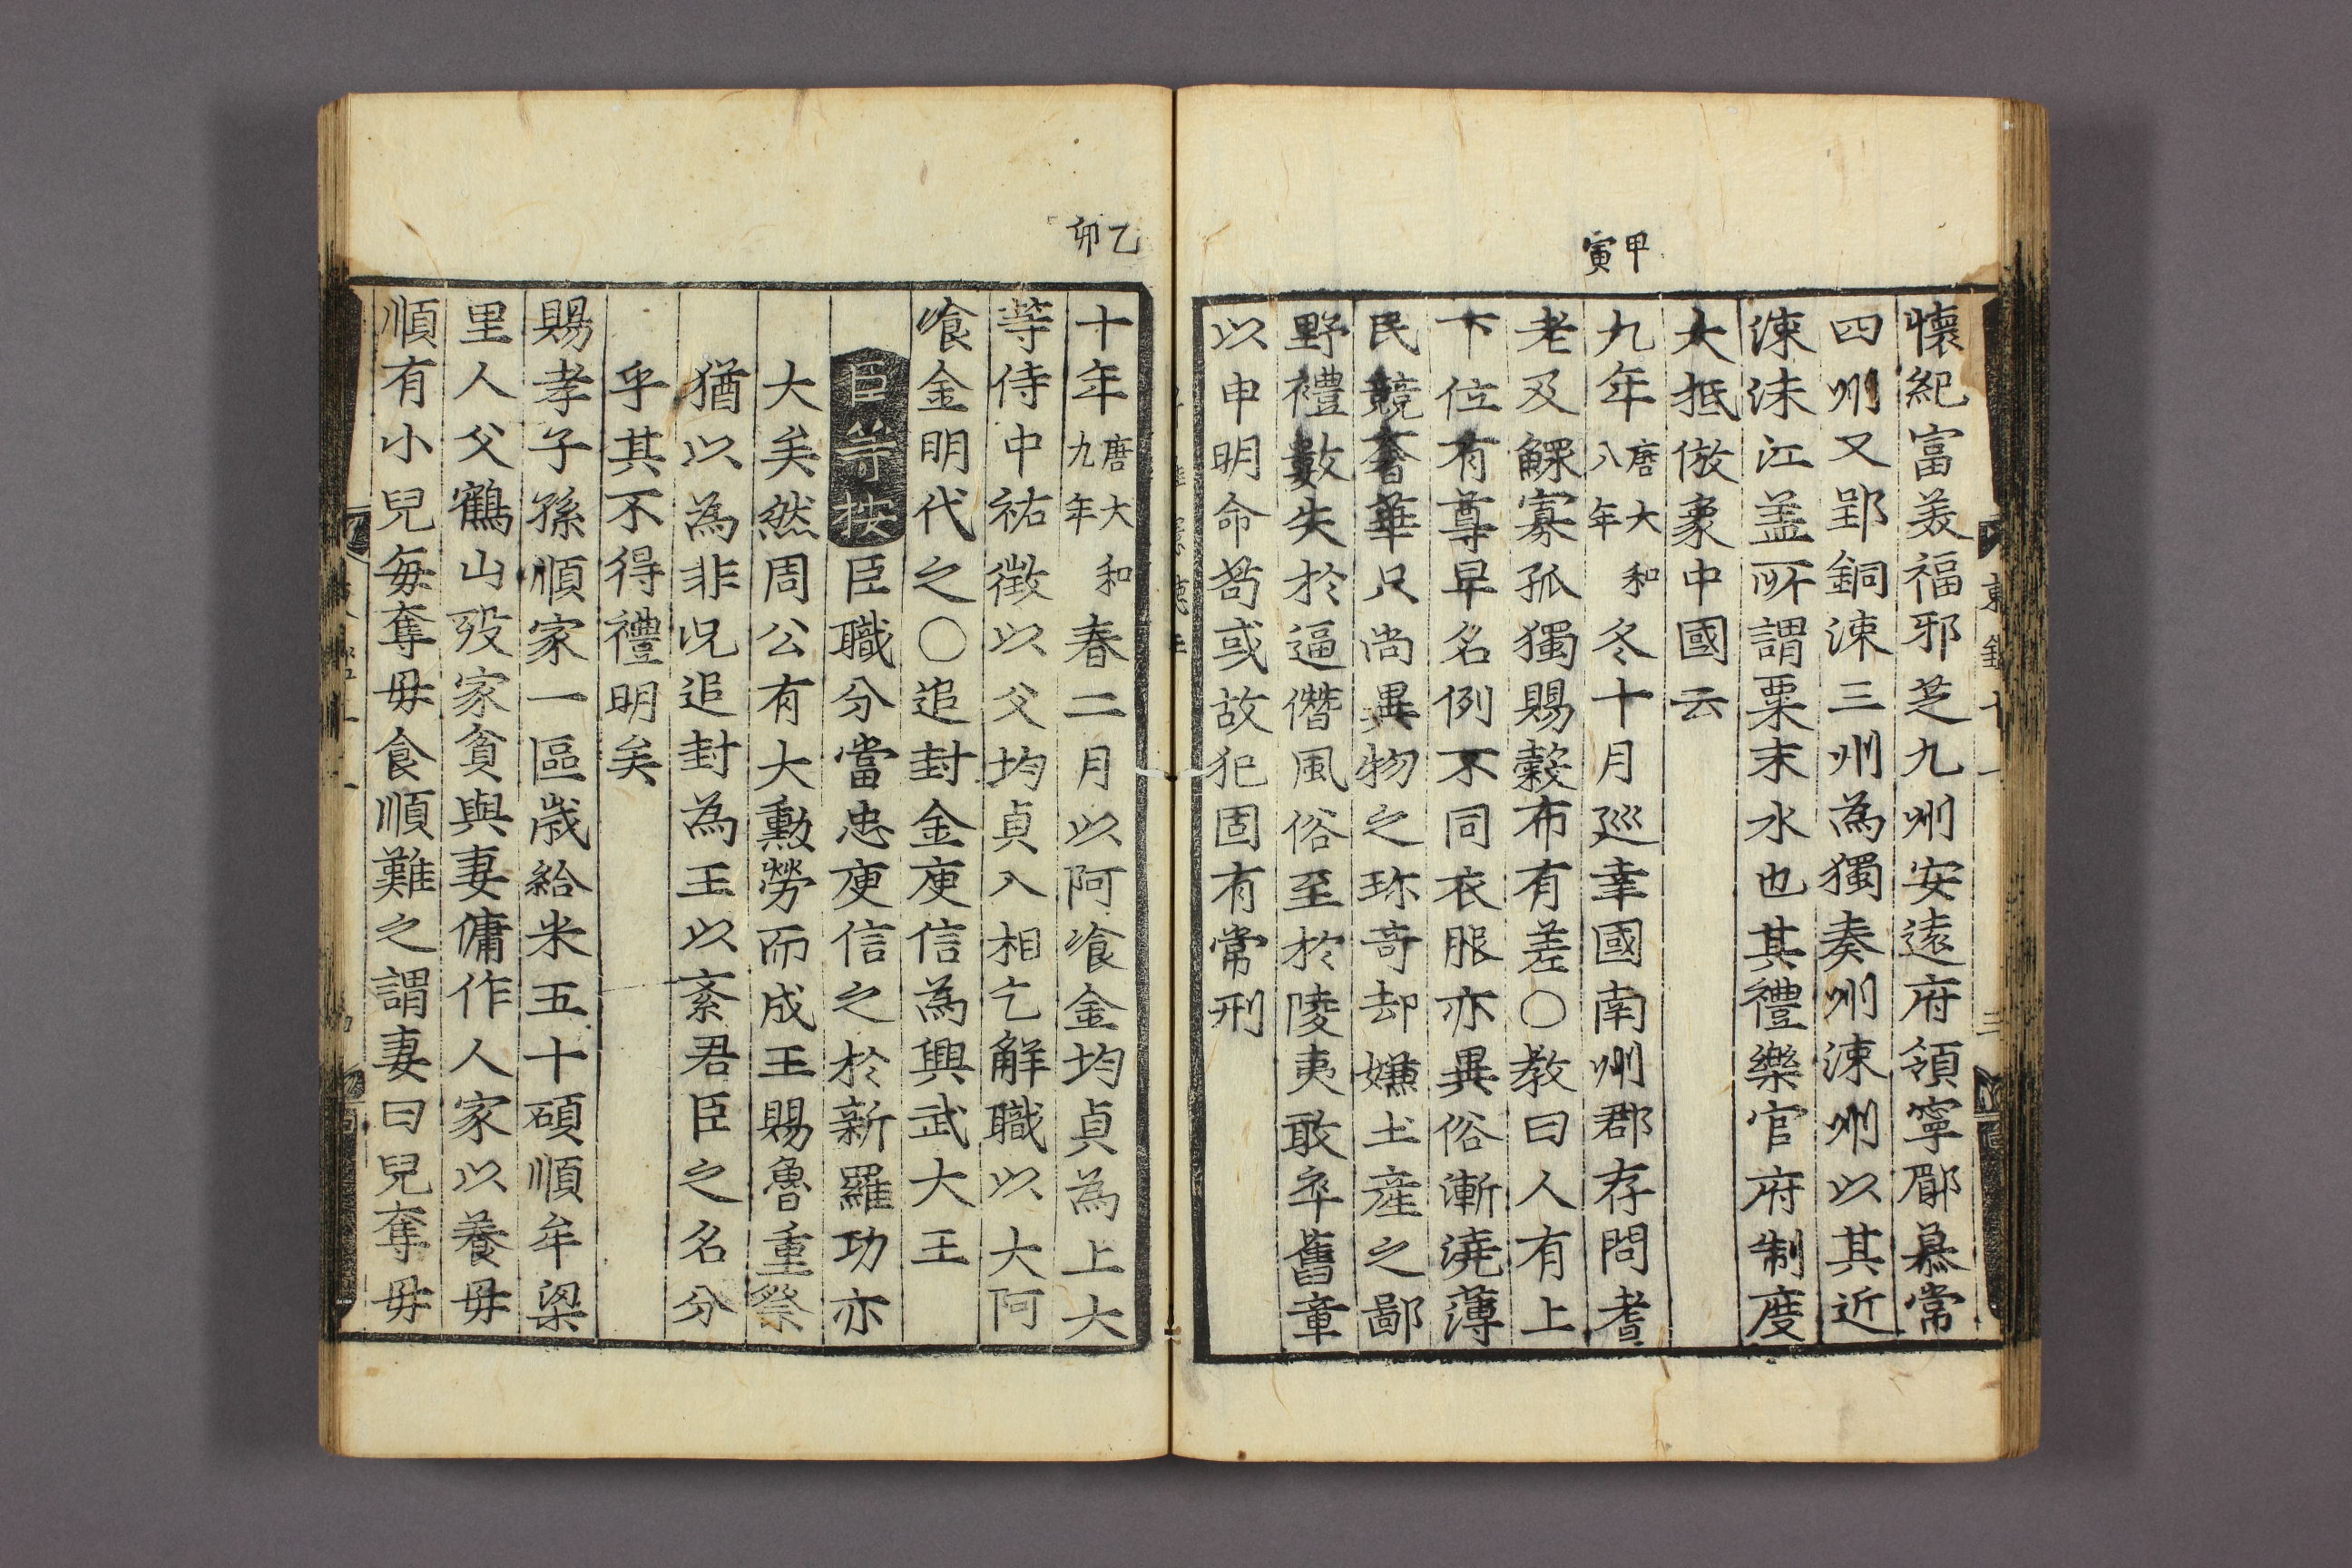 甲寅
懷紀富美福邪芝九州安遠府領寧郿慕常
四州又郢銅涑三州為獨奏州涑州以其近
涑沫江盖所謂粟末水也其禮樂官府制度
大抵倣象中國云
九年唐大和八年冬十月巡幸國南州郡存問耆
老及鰥寡孤獨賜穀布有差○教曰人有上
下位有尊卑名例不同衣服亦異俗漸澆薄
民競奢華只尚異物之珎竒却嫌土産之鄙
野禮數失於逼僭風俗至於陵夷敢率舊章
以申明命苟或故犯固有常刑
乙卯
十年唐大和九年春二月以阿飡金均貞為上大
等侍中祐徵以父均貞入相乞解職以大阿
飡金明代之○追封金庾信為興武大王
臣等按臣職分當忠庾信之於新羅功亦
大矣然周公有大勳勞而成王賜魯重祭
猶以為非况追封為王以紊君臣之名分
乎其不得禮明矣
賜孝子孫順家一區歲給米五十碩順牟梁
里人父鶴山歿家貧與妻傭作人家以養毋
順有小兒每奪毋食順難之謂妻曰兒奪毋